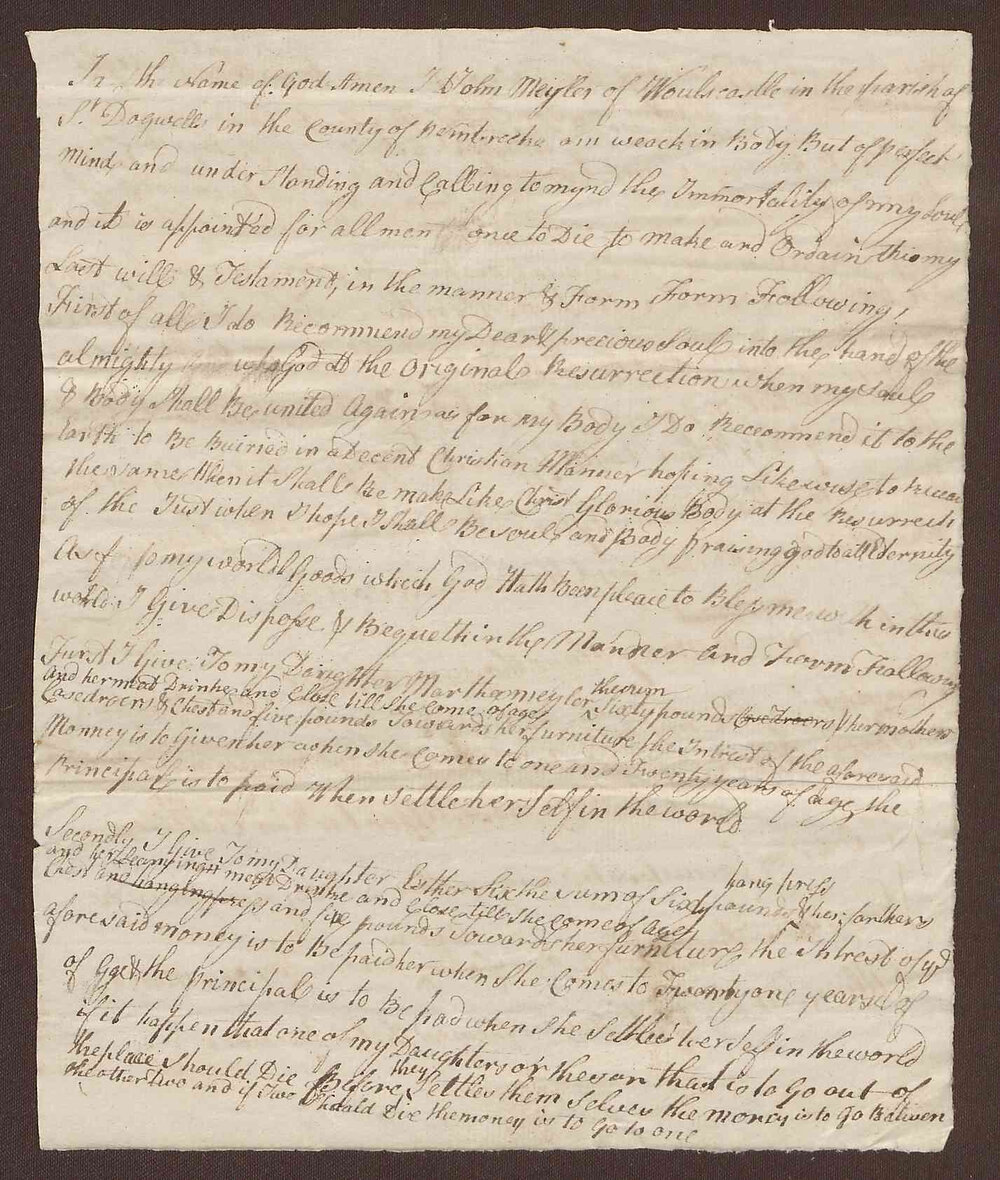 In the Name of God Amen I John Meyler of Woulscastle in the parish of
St Dogwells in the County of pembrocke am weack in Body But of perfect
mind and under standing and Calling to mynd the Immortality of my Soul
and it is appointed for all men once to Die to make and Ordain this my
Last will & Testament, in the manner & Form Form Following,
First of all I do Recommend my Dear & precious Soul into the hand of the
almighty God at the Original Resurrection when my Soul
& Body Shall Be united Again as for my Body I Do Recommend it to the
Earth to Be Buiried in a Decent Christian Manner hoping Likewise to
the same when it Shall Be make Like Christ Glorious Body at the Resurrecti
of the Just when I hope I Shall Be soul and Body praising god to all Eternity
As to my worldl Goods which God Hath Been pleace to Bless me with in this
world I Give Dispose & Bequeth in the Manner and Form Following
First I Give To my Daughter Martha meyler the sum Sixty pounds & her mothers
and her meat Drinke and Close till She come of age
Casedroers & Chest and five pounds Towards her furniture the Intrest of the aforesaid
Monney is to Given her when she Comes to one and Twenty years of age the
Principal is to paid When settle her Self in the world
Secondly I Give To my Daughter Esther the sum of Sixty pounds & her farthers hang press
and her meat Drinke and Close till She come of age
Chest and five pounds Towards her furniture the Intrest of ye
afore said money is to Be paid her when She Comes to Twenty one years of
of Age & the principal is to Be paid when she settles her Self in the world
if it happen that one of my Daughters or the son that is to Go out of
the place Should Die Before they Settles them Selves the money is to Go Batwen
the other Two and if Two Should Die the money is to Go to one